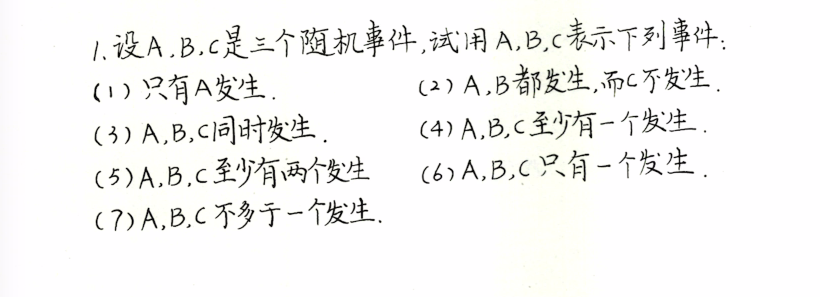 1.设A,B,C是三个随机事件,试用A,B,C表示下列事件:
(1) 只有A发生. (2) A,B都发生,而C不发生.
(3) A,B,C同时发生. (4) A,B,C至少有一个发生.
(5) A,B,C至少有两个发生 (6) A,B,C只有一个发生.
(7) A,B,C不多于一个发生.